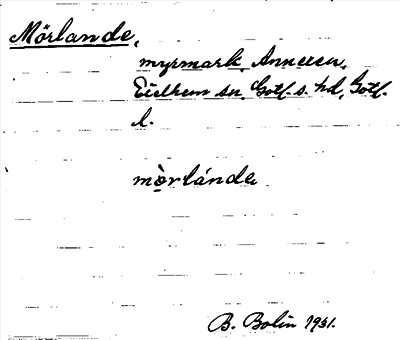 Mörlande,
myrmark, Annexen,
Eielhem sn. Gotl. s. hd, Gotl.
l.
mòrlánde
B. Bolin 1931.